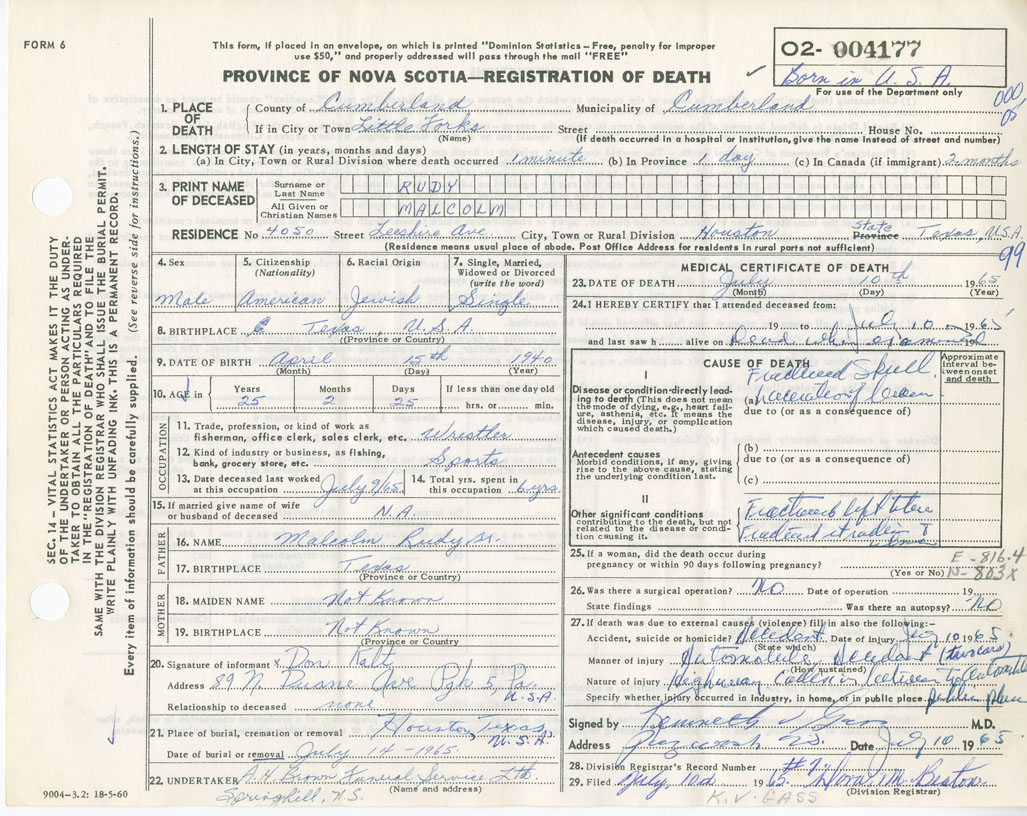 FORM 6
This form, if placed in an envelope, on which is printed "Dominion Statistics – Free, penalty for improper
use $50," and properly addressed will pass through the mail "FREE"
PROVINCE OF NOVA SCOTIA—REGISTRATION OF DEATH
O2- 004177
Born in U.S.A.
For use of the Department only
SEC. 14 - VITAL STATISTICS ACT MAKES IT THE DUTY
OF THE UNDERTAKER OR PERSON ACTING AS UNDER-
TAKER TO OBTAIN ALL THE PARTICULARS REQUIRED
IN THE "REGISTRATION OF DEATH" AND TO FILE THE
SAME WITH THE DIVISION REGISTRAR WHO SHALL ISSUE THE BURIAL PERMIT.
WRITE PLAINLY WITH UNFADING INK. THIS IS A PERMANENT RECORD.
Every item of information should be carefully supplied. (See reverse side for instructions.)
1. PLACE OF DEATH County of Cumberland Municipality of Cumberland
If in City or Town Little Forks Street House No.
(Name) (If death occurred in a hospital or institution, give the name instead of street and number)
2. LENGTH OF STAY (in years, months and days)
(a) In City, Town or Rural Division where death occurred 1 minute (b) In Province 1 day (c) In Canada (if immigrant) 2 months
3. PRINT NAME OF DECEASED Surname or Last Name RUDY
All Given or Christian Names MALCOLM
RESIDENCE No 4050 Street Leeshire Ave City, Town or Rural Division Houston State Province Texas, U.S.A.
(Residence means usual place of abode. Post Office Address for residents in rural parts not sufficient)
99
4. Sex 5. Citizenship (Nationality) 6. Racial Origin 7. Single, Married, Widowed or Divorced (write the word)
Male American Jewish Single
8. BIRTHPLACE Texas, U.S.A.
(Province or Country)
9. DATE OF BIRTH April 15th 1940
(Month) (Day) (Year)
10. AGE in Years Months Days If less than one day old
25 2 25 hrs. or min.
OCCUPATION
11. Trade, profession, or kind of work as
fisherman, office clerk, sales clerk, etc. Wrestler
12. Kind of industry or business, as fishing,
bank, grocery store, etc. Sports
13. Date deceased last worked at this occupation July 9/65 14. Total yrs. spent in this occupation 6 yrs.
15. If married give name of wife
or husband of deceased N.A.
FATHER
16. NAME Malcolm Rudy Sr.
17. BIRTHPLACE Texas
(Province or Country)
MOTHER
18. MAIDEN NAME Not Known
19. BIRTHPLACE Not Known
(Province or Country)
20. Signature of informant x Don Kalt
Address 89 N. Duane Ave Pgh 5, Pa. U.S.A.
Relationship to deceased none
21. Place of burial, cremation or removal Houston, Texas U.S.A.
Date of burial or removal July 14 - 1965
22. UNDERTAKER A.H. Brown Funeral Service Ltd.
(Name and address)
Springhill, N.S.
9004-3.2: 18-5-60
MEDICAL CERTIFICATE OF DEATH
23. DATE OF DEATH July 10th 1965
(Month) (Day) (Year)
24. I HEREBY CERTIFY that I attended deceased from:
19 to July 10 1965
and last saw h alive on Dead when examined
CAUSE OF DEATH
Approximate interval between onset and death
I
Disease or condition directly leading to death (This does not mean the mode of dying, e.g., heart failure, asthenia, etc. It means the disease, injury, or complication which caused death.)
Fractured Skull
(a) Laceration of
due to (or as a consequence of)
Antecedent causes
Morbid conditions, if any, giving rise to the above cause, stating the underlying condition last.
(b)
due to (or as a consequence of)
(c)
II
Other significant conditions
contributing to the death, but not related to the disease or condition causing it.
Fractured left
Fractured
25. If a woman, did the death occur during
pregnancy or within 90 days following pregnancy?
(Yes or No)
E - 816.4
N - 803X
26. Was there a surgical operation? No Date of operation 19
State findings Was there an autopsy? No
27. If death was due to external causes (violence) fill in also the following:-
Accident, suicide or homicide? Accident Date of injury July 10 1965
(State which)
Manner of injury Automobile Accident (two cars)
(How sustained)
Nature of injury Highway collision between two
Specify whether injury occurred in industry, in home, or in public place public place
Signed by Kenneth V Gass M.D.
Address N.S. Date July 10 1965
28. Division Registrar's Record Number
29. Filed July, 10th 1965
(Division Registrar)
K. V. GASS